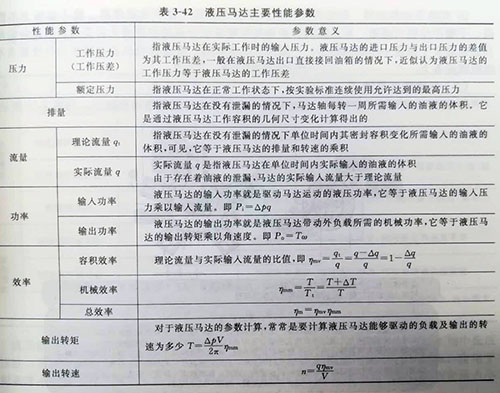 表 3-42 液压马达主要性能参数
性 能 参 数 参 数 意 义
压力 工作压力(工作压差) 指液压马达在实际工作时的输入压力。液压马达的进口压力与出口压力的差值
为其工作压差,一般在液压马达出口直接接回油箱的情况下,近似认为液压马达的
工作压力等于液压马达的工作压差
额定压力 指液压马达在正常工作状态下,按实验标准连续使用允许达到的最高压力
排量 指液压马达在没有泄漏的情况下,马达轴每转一周所需输入的油液的体积。它
是通过液压马达工作容积的几何尺寸变化计算得出的
流量 理论流量 qt 指液压马达在没有泄漏的情况下单位时间内其密封容积变化所需输入的油液的
体积,可见,它等于液压马达的排量和转速的乘积
实际流量 q 实际流量 q 是指液压马达在单位时间内实际输入的油液的体积
由于存在着油液的泄漏,马达的实际输入流量大于理论流量
功率 输入功率 液压马达的输入功率就是驱动马达运动的液压功率,它等于液压马达的输入压
力乘以输入流量。即 Pi=Δpq
输出功率 液压马达的输出功率就是液压马达带动外负载所需的机械功率,它等于液压马
达的输出转矩乘以角速度。即 Po=Tω
效率 容积效率 理论流量与实际输入流量的比值,即 ηmv=qt/q=(q-Δq)/q=1-Δq/q
机械效率 ηmm=T/Tt=(T+ΔT)/T
总效率 ηm=ηmvηmm
输出转矩 对于液压马达的参数计算,常常是要计算液压马达能够驱动的负载及输出的转
速为多少 T=ΔpV/2π ηmm
输出转速 n=qηmv/V